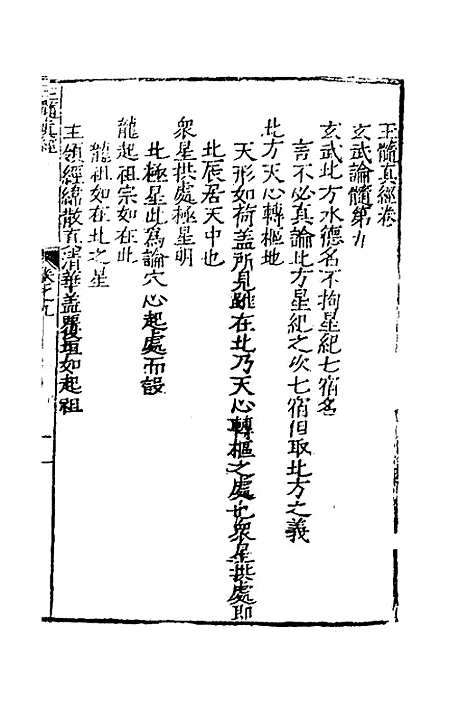 玉髓真經卷
玄武論髓第九
玄武北方水德名不拘星紀七宿名
言不必真論北方星紀之次七宿但取北方之義
北方天心轉樞地
天形如荷盖所見雖在北乃天心轉樞之處也衆星拱處即
北辰居天中也
衆星拱處極星明
北極星此爲論穴心起處而設
龍起祖宗如在此
龍祖如在北之星
主領經緯散真清華盖覆垣如起祖
玉髓真經
卷之九